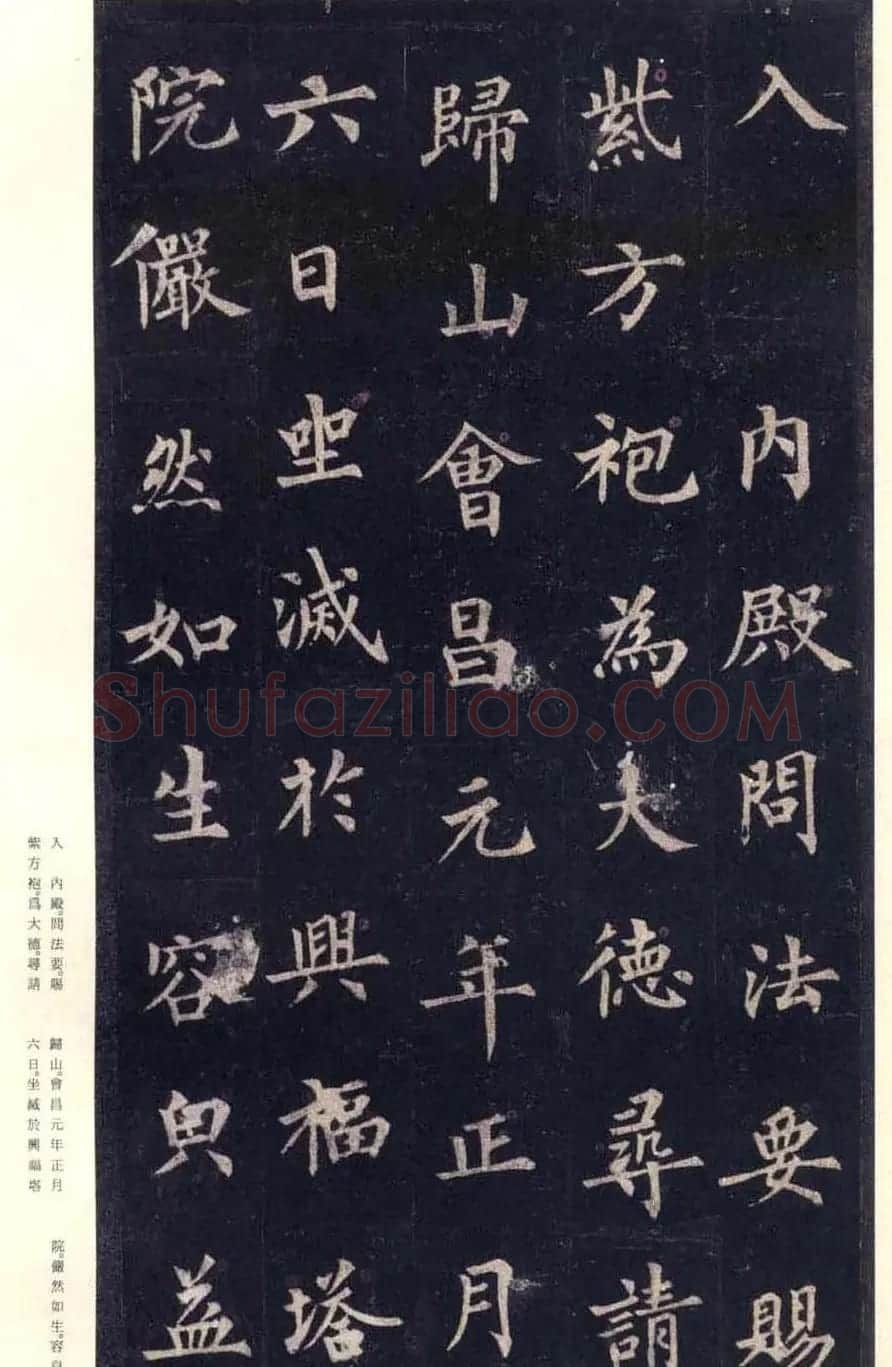 入 内殿問法要賜
紫方袍為大德尋請
歸山會昌元年正月
六日坐滅於興福塔
院儼然如生容皃益
Shufaziliao.COM
入 内殿。問法要。賜
紫方袍。爲大德。尋請
歸山。會昌元年正月
六日。坐滅於興福塔
院。儼然如生。容皃